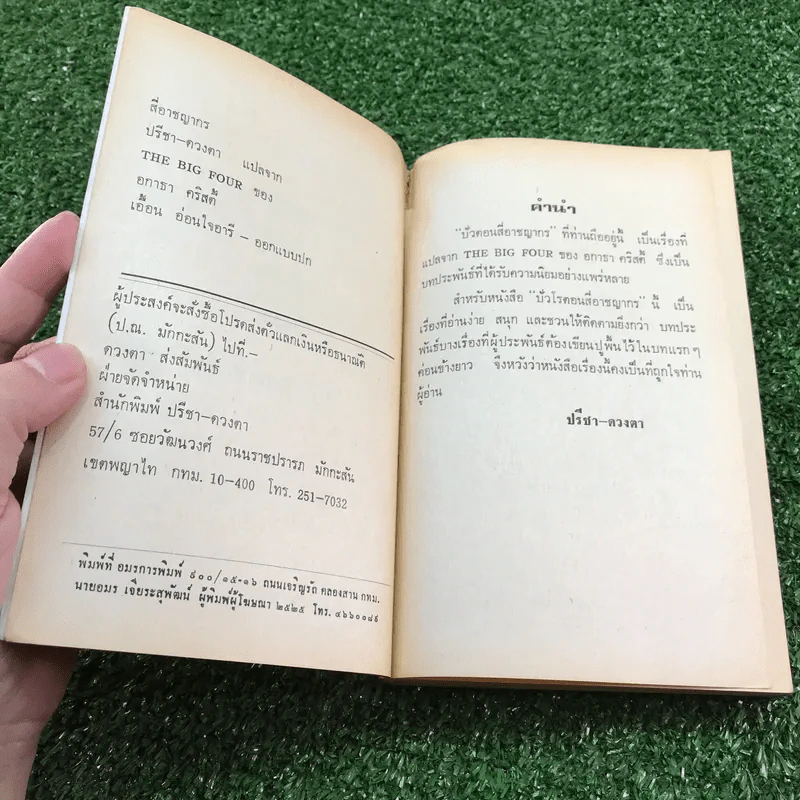 สี่อาชญากร
ปรีชา–ดวงตา แปลจาก
THE BIG FOUR ของ
อกาธา คริสตี้
เอื้อน อ่อนใจอารี – ออกแบบปก
ผู้ประสงค์จะสั่งซื้อโปรดส่งตั๋วแลกเงินหรือธนาณัติ
(ป.ณ. มักกะสัน) ไปที่.–
ดวงตา ส่งสัมพันธ์
ฝ่ายจัดจำหน่าย
สำนักพิมพ์ ปรีชา–ดวงตา
57/6 ซอยวัฒนวงศ์ ถนนราชปรารภ มักกะสัน
เขตพญาไท กทม. 10-400 โทร. 251-7032
พิมพ์ที่ อมรการพิมพ์ ๙๐๐/๑๕-๑๖ ถนนเจริญรัถ คลองสาน กทม.
นายอมร เจียระสุพัฒน์ ผู้พิมพ์ผู้โฆษณา ๒๕๒๕ โทร. ๔๖๖๐๐๘๑
คำนำ
"บัวตอนสี่อาชญากร" ที่ท่านถืออยู่นี้ เป็นเรื่องที่
แปลจาก THE BIG FOUR ของ อกาธา คริสตี้ ซึ่งเป็น
บทประพันธ์ที่ได้รับความนิยมอย่างแพร่หลาย
สำหรับหนังสือ "บัวโรตอนสี่อาชญากร" นี้ เป็น
เรื่องที่อ่านง่าย สนุก และชวนให้ติดตามยิ่งกว่า บทประ
พันธ์บางเรื่องที่ผู้ประพันธ์ต้องเขียนปูพื้นไว้ในบทแรก ๆ
ค่อนข้างยาว จึงหวังว่าหนังสือเรื่องนี้คงเป็นที่ถูกใจท่าน
ผู้อ่าน
ปรีชา–ดวงตา